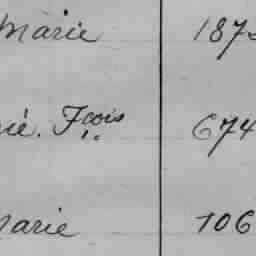 Marie 187
né. Fçois 674
Marie 106